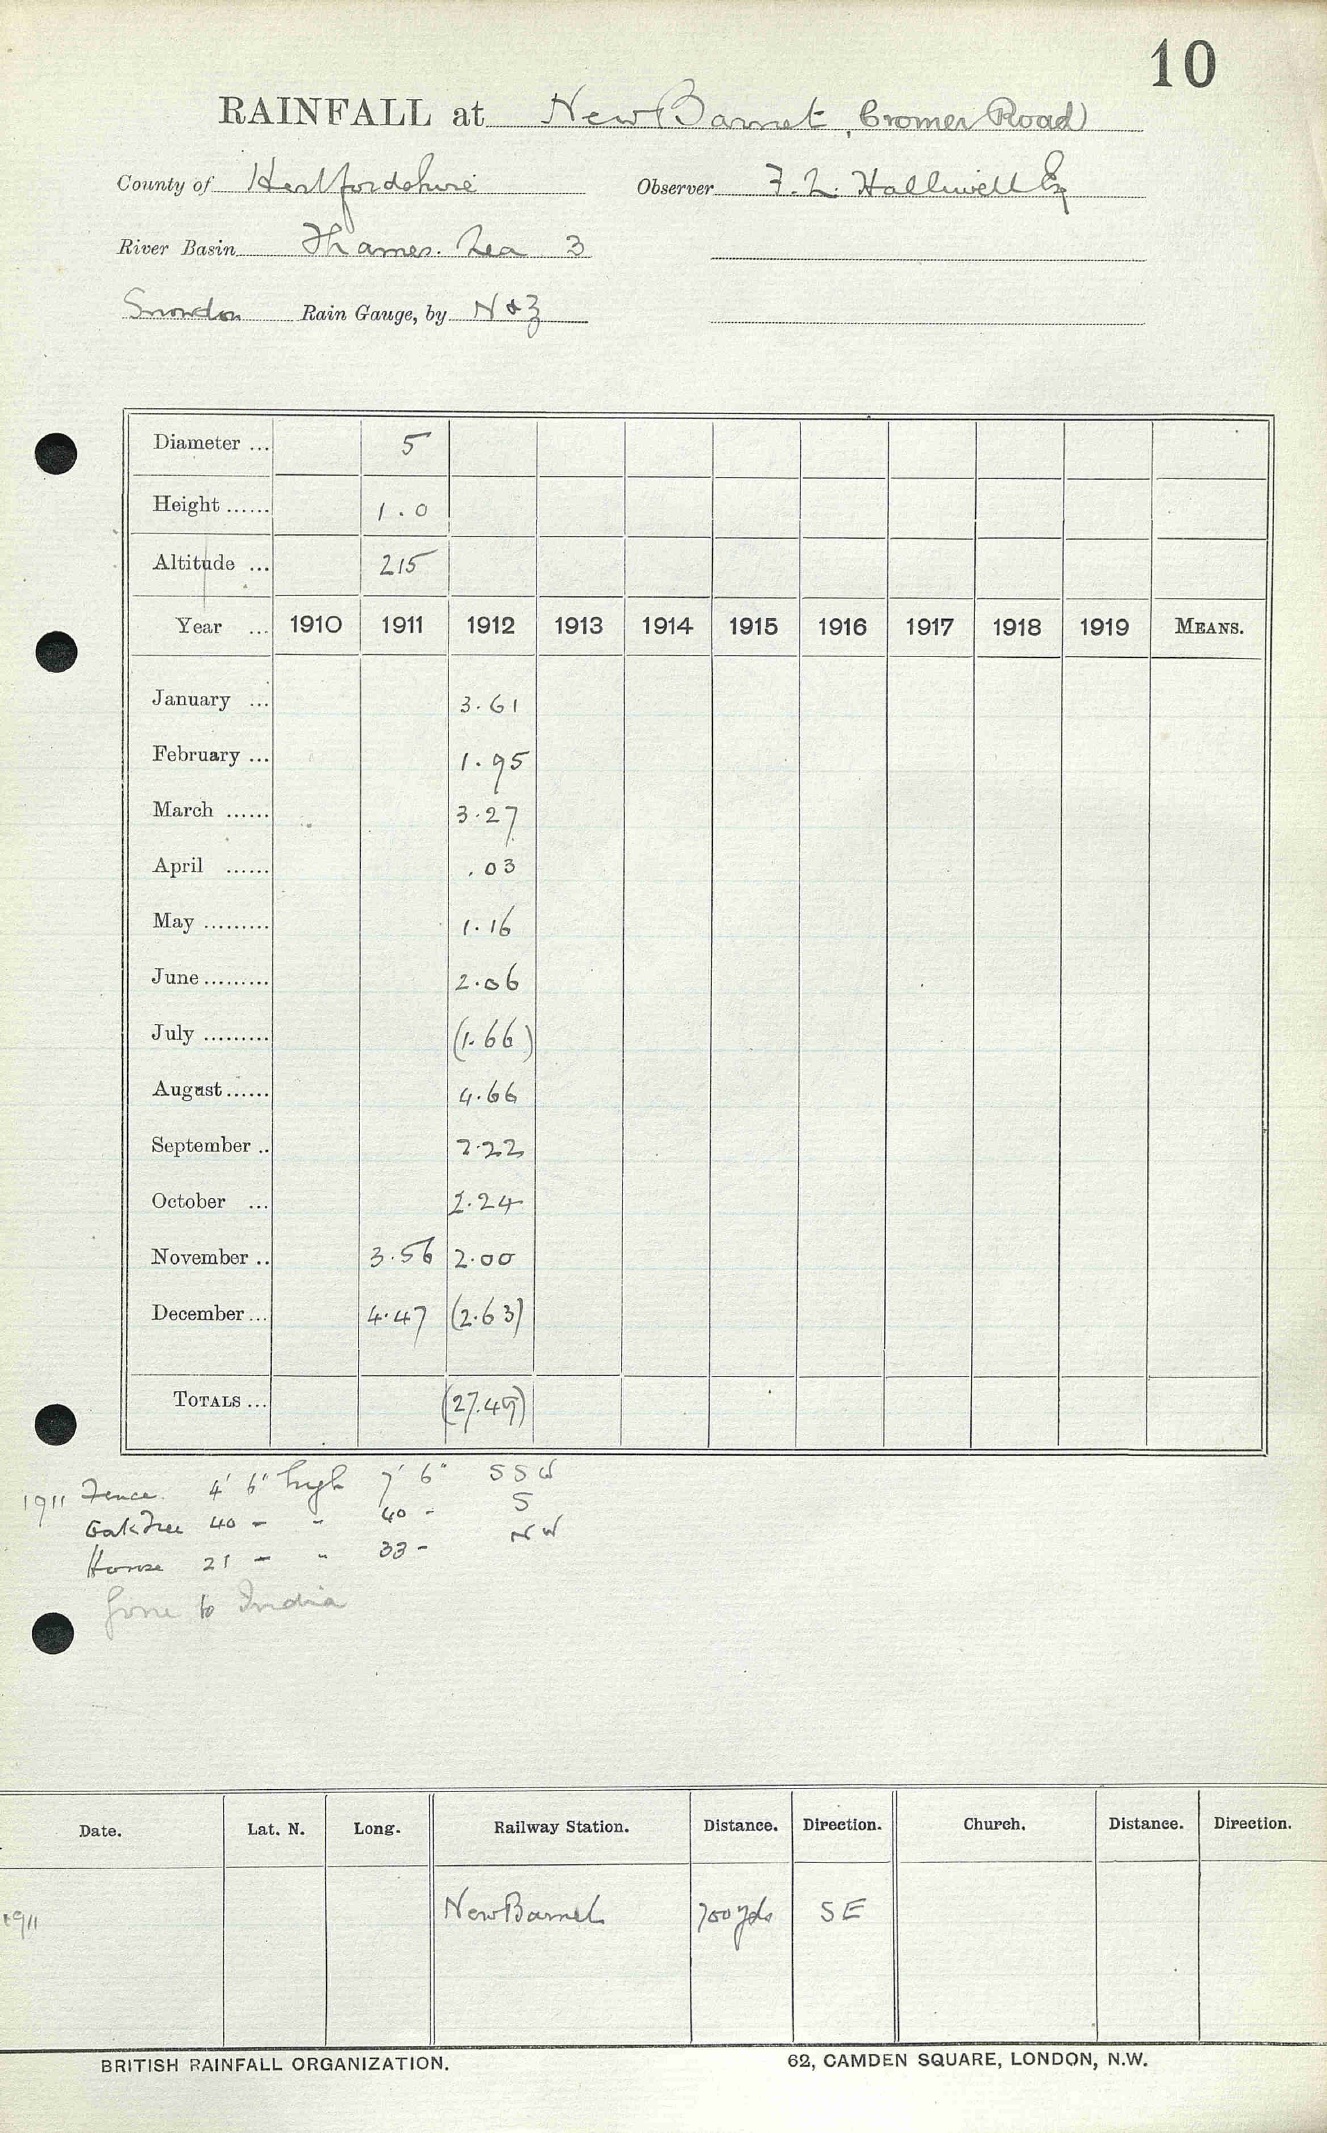 10
RAINFALL at New Barnet, Cromer Road
County of Hertfordshire Observer F. L. Halliwell Esq
River Basin Thames. Lea 3
Snowdon Rain Gauge, by N & Z
Diameter ... 5
Height ...... 1.0
Altitude ... 215
Year ... 1910 1911 1912 1913 1914 1915 1916 1917 1918 1919 MEANS.
January ... 3.61
February ... 1.95
March ...... 3.27
April ...... .03
May ......... 1.16
June ......... 2.06
July ......... (1.66)
August ...... 4.66
September .. 2.22
October ... 2.24
November .. 3.56 2.00
December ... 4.47 (2.63)
TOTALS ... (27.49)
1911 Fence. 4' 6" high 7' 6" SSW
Oak Tree 40 - " 40 - S
House 21 - " 33 - NW
Gone to India
Date. Lat. N. Long. Railway Station. Distance. Direction. Church. Distance. Direction.
1911 New Barnet 700 yds SE
BRITISH RAINFALL ORGANIZATION. 62, CAMDEN SQUARE, LONDON, N.W.